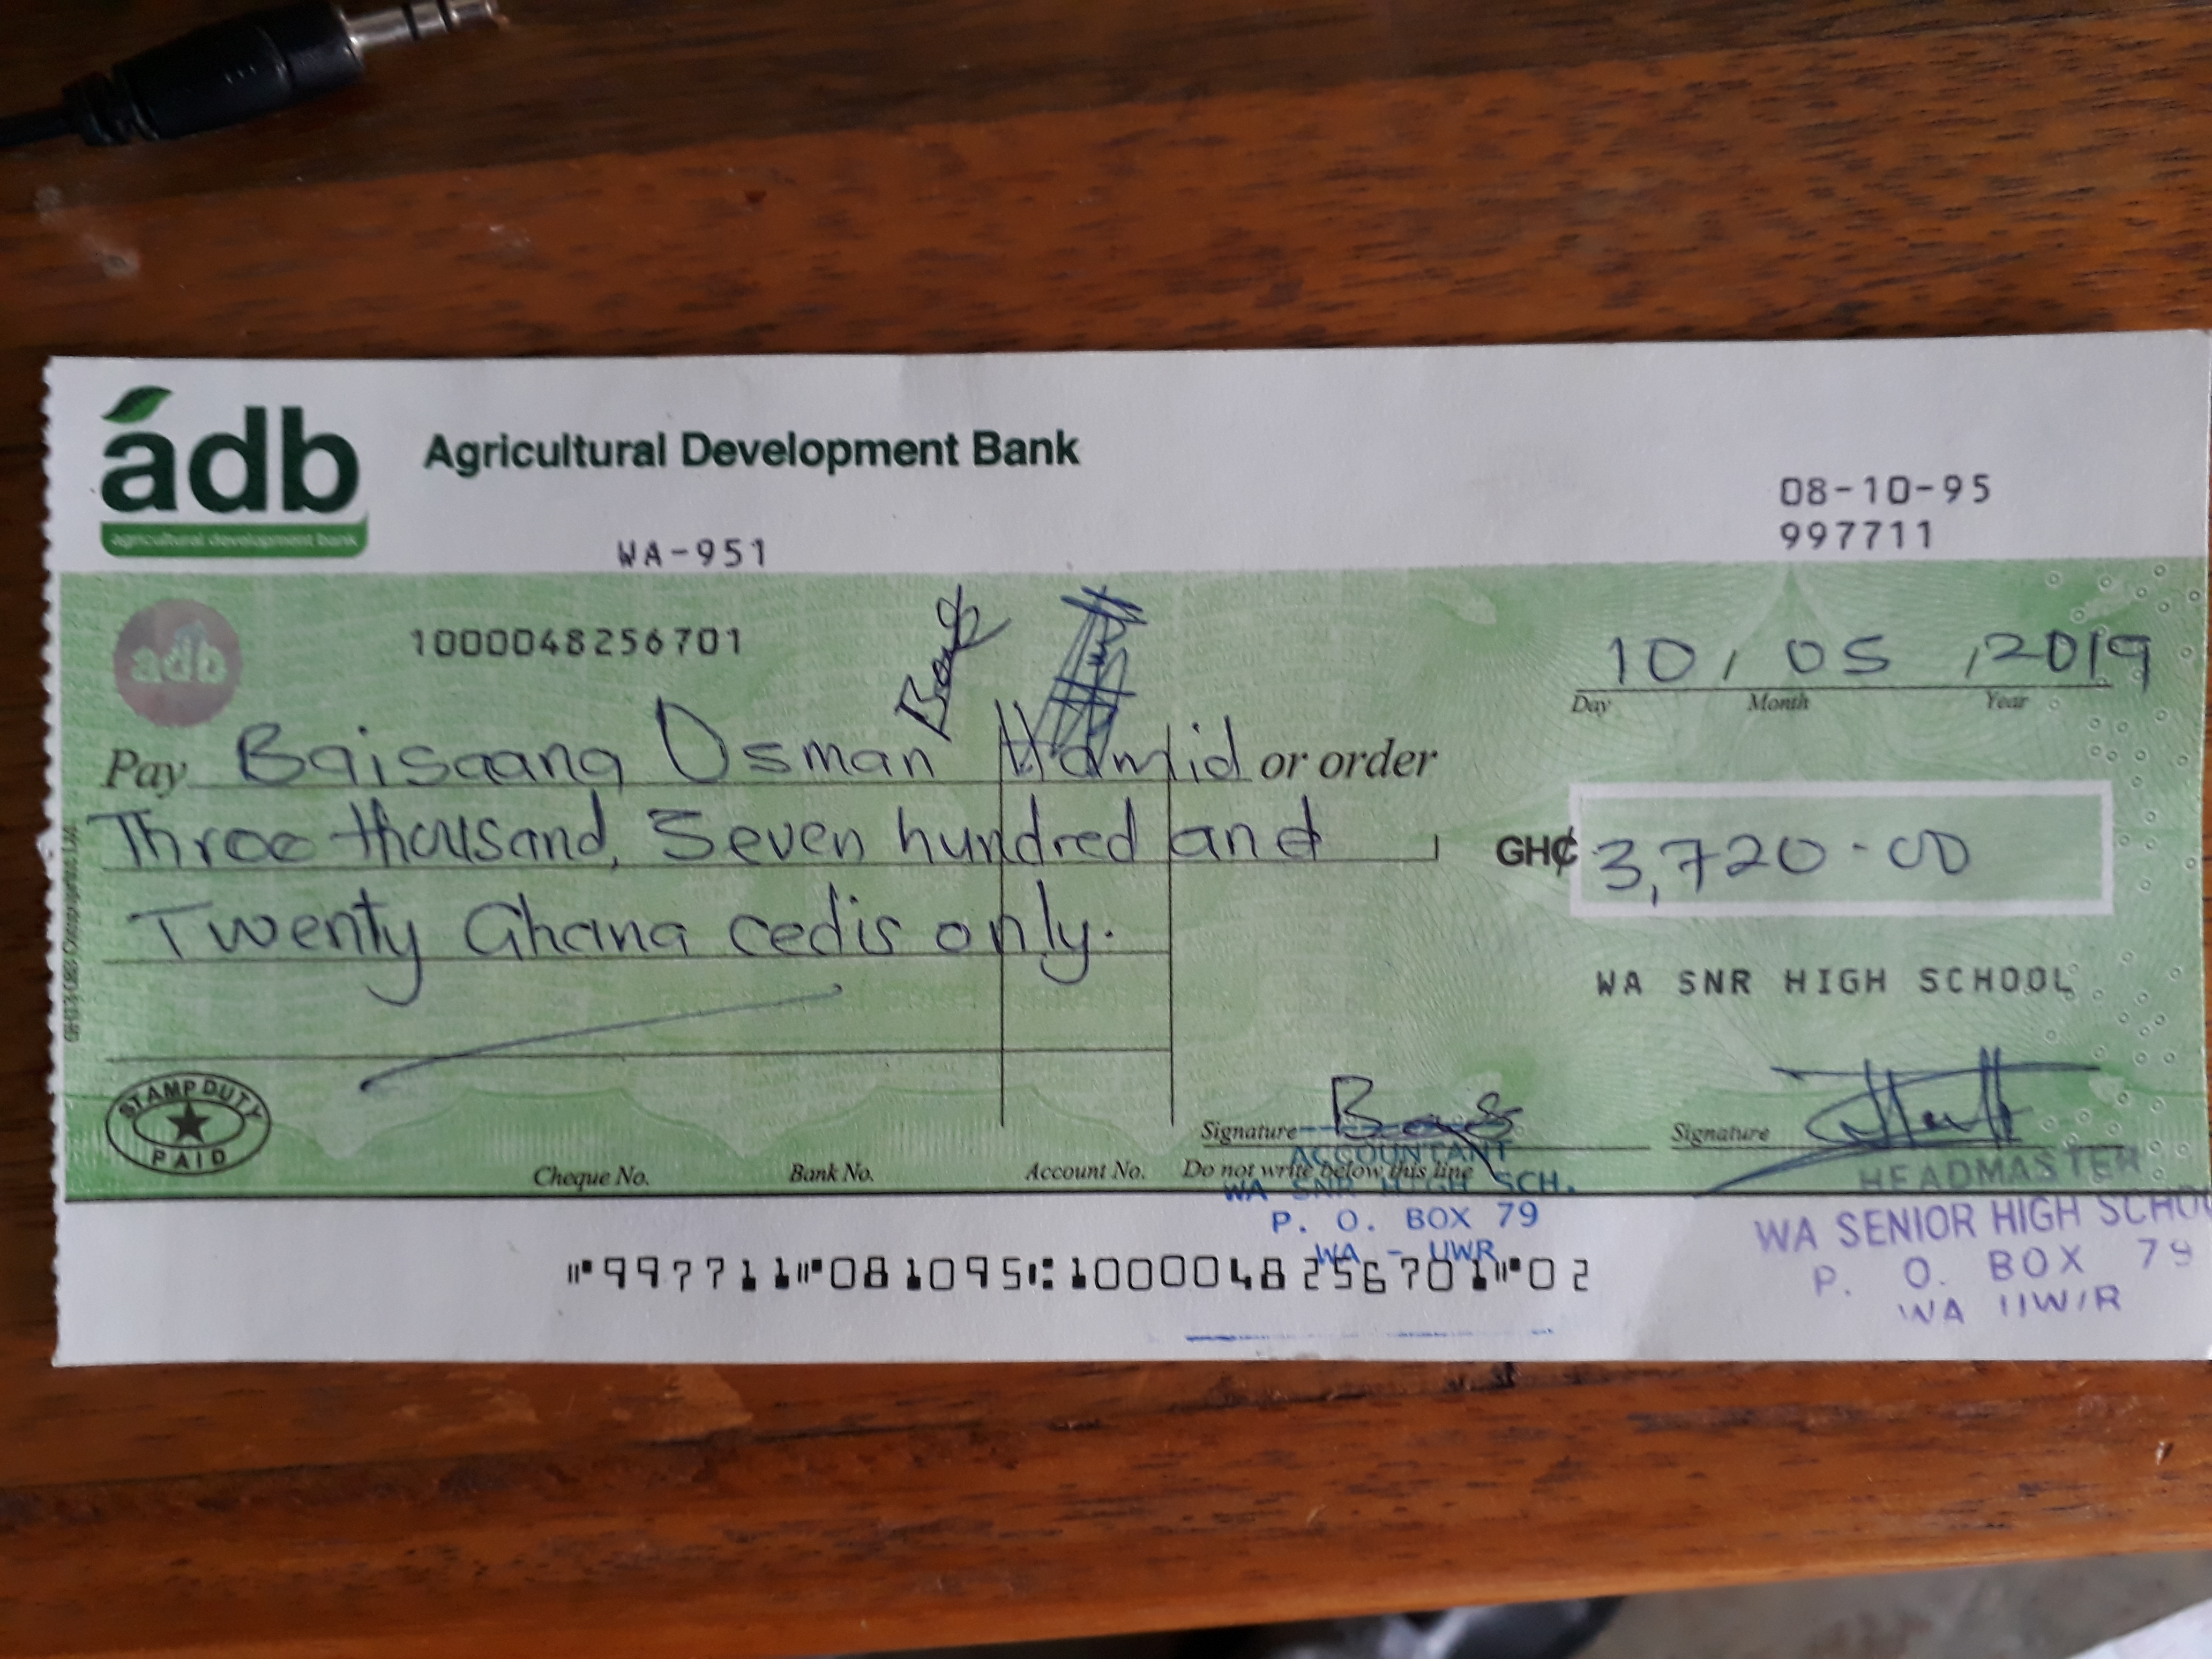 adb
agricultural development bank
Agricultural Development Bank
WA-951
08-10-95
997711
adb
1000048256701
10, 05, 2019
Day Month Year
Pay Baisaang Osman Hamid or order
Three thousand, Seven hundred and
GH₵ 3,720-00
Twenty Ghana cedis only.
WA SNR HIGH SCHOOL
STAMP DUTY
PAID
Signature
Signature
Cheque No. Bank No. Account No. Do not write below this line
ACCOUNTANT
WA SNR HIGH SCH.
P. O. BOX 79
WA - UWR
HEADMASTER
WA SENIOR HIGH SCHOOL
P. O. BOX 79
WA UW/R
⑈997711⑈081095⑆1000048256701⑈02